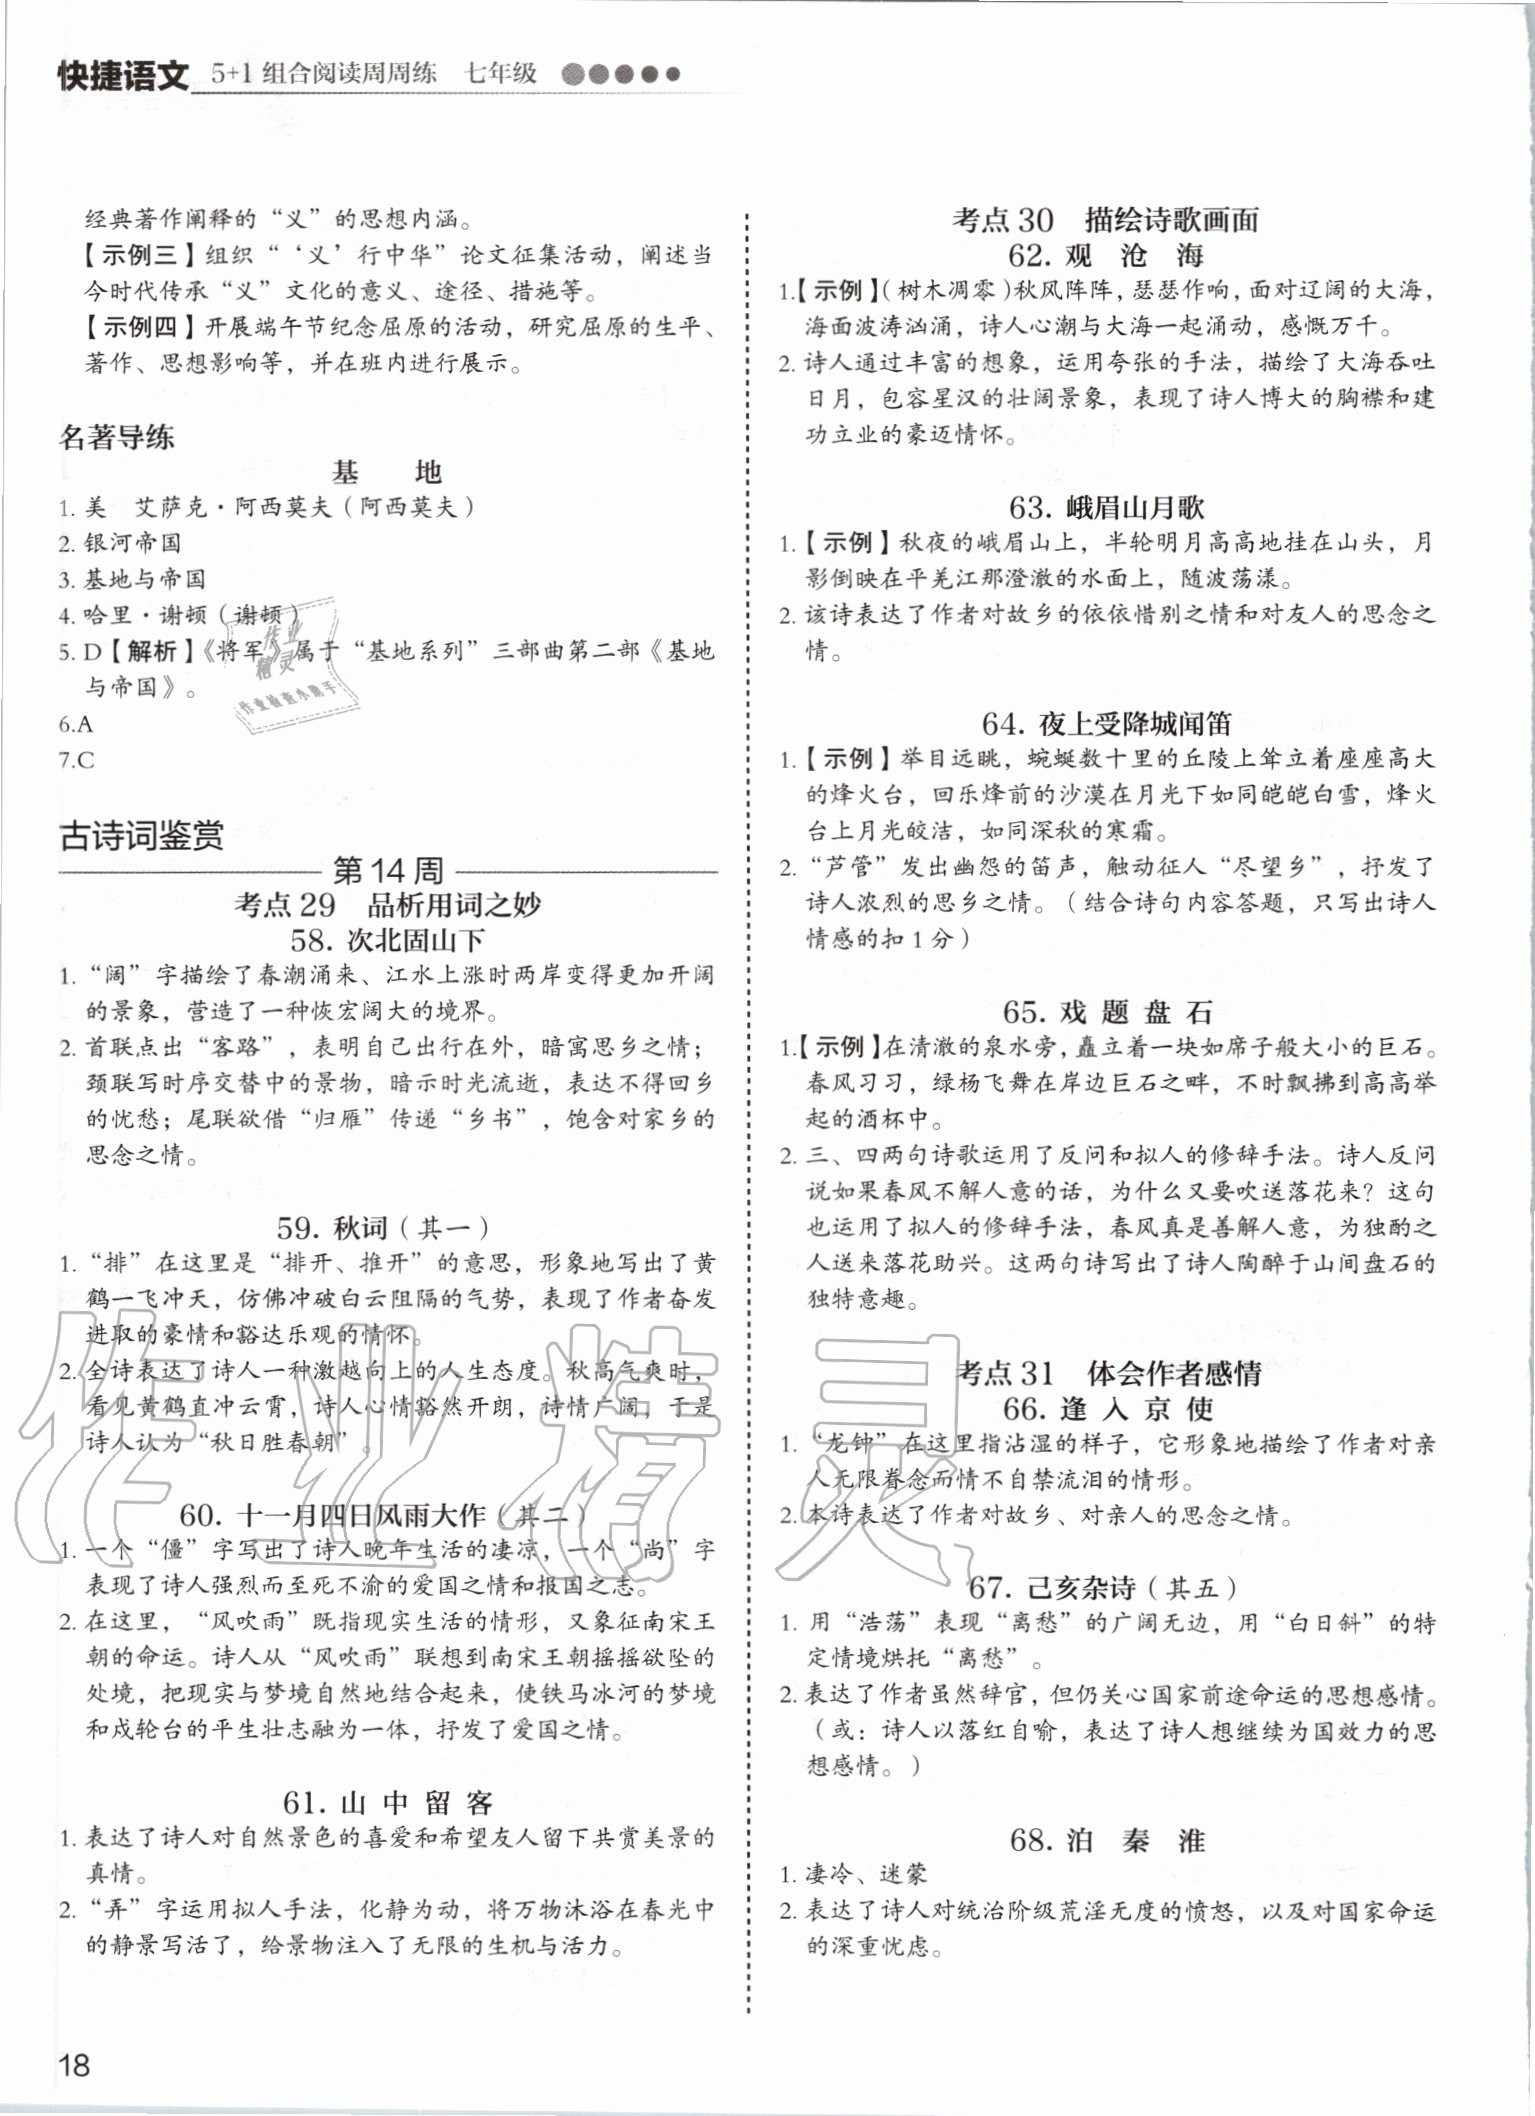 快捷语文 5+1组合阅读周周练 七年级
经典著作阐释的“义”的思想内涵。
【示例三】组织“‘义’行中华”论文征集活动，阐述当
今时代传承“义”文化的意义、途径、措施等。
【示例四】开展端午节纪念屈原的活动，研究屈原的生平、
著作、思想影响等，并在班内进行展示。
名著导练
基　地
1. 美　艾萨克·阿西莫夫（阿西莫夫）
2. 银河帝国
3. 基地与帝国
4. 哈里·谢顿（谢顿）
5. D【解析】《将军》属于“基地系列”三部曲第二部《基地
与帝国》。
6.A
7.C
古诗词鉴赏
第14周
考点29　品析用词之妙
58. 次北固山下
1. “阔”字描绘了春潮涌来、江水上涨时两岸变得更加开阔
的景象，营造了一种恢宏阔大的境界。
2. 首联点出“客路”，表明自己出行在外，暗寓思乡之情；
颈联写时序交替中的景物，暗示时光流逝，表达不得回乡
的忧愁；尾联欲借“归雁”传递“乡书”，饱含对家乡的
思念之情。
59. 秋词（其一）
1. “排”在这里是“排开、推开”的意思，形象地写出了黄
鹤一飞冲天，仿佛冲破白云阻隔的气势，表现了作者奋发
进取的豪情和豁达乐观的情怀。
2. 全诗表达了诗人一种激越向上的人生态度。秋高气爽时，
看见黄鹤直冲云霄，诗人心情豁然开朗，诗情广阔，于是
诗人认为“秋日胜春朝”。
60. 十一月四日风雨大作（其二）
1. 一个“僵”字写出了诗人晚年生活的凄凉，一个“尚”字
表现了诗人强烈而至死不渝的爱国之情和报国之志。
2. 在这里，“风吹雨”既指现实生活的情形，又象征南宋王
朝的命运。诗人从“风吹雨”联想到南宋王朝摇摇欲坠的
处境，把现实与梦境自然地结合起来，使铁马冰河的梦境
和戍轮台的平生壮志融为一体，抒发了爱国之情。
61. 山中留客
1. 表达了诗人对自然景色的喜爱和希望友人留下共赏美景的
真情。
2. “弄”字运用拟人手法，化静为动，将万物沐浴在春光中
的静景写活了，给景物注入了无限的生机与活力。
18
考点30　描绘诗歌画面
62. 观沧海
1.【示例】（树木凋零）秋风阵阵，瑟瑟作响，面对辽阔的大海，
海面波涛汹涌，诗人心潮与大海一起涌动，感慨万千。
2. 诗人通过丰富的想象，运用夸张的手法，描绘了大海吞吐
日月，包容星汉的壮阔景象，表现了诗人博大的胸襟和建
功立业的豪迈情怀。
63. 峨眉山月歌
1.【示例】秋夜的峨眉山上，半轮明月高高地挂在山头，月
影倒映在平羌江那澄澈的水面上，随波荡漾。
2. 该诗表达了作者对故乡的依依惜别之情和对友人的思念之
情。
64. 夜上受降城闻笛
1.【示例】举目远眺，蜿蜒数十里的丘陵上耸立着座座高大
的烽火台，回乐烽前的沙漠在月光下如同皑皑白雪，烽火
台上月光皎洁，如同深秋的寒霜。
2. “芦管”发出幽怨的笛声，触动征人“尽望乡”，抒发了
诗人浓烈的思乡之情。（结合诗句内容答题，只写出诗人
情感的扣1分）
65. 戏题盘石
1.【示例】在清澈的泉水旁，矗立着一块如席子般大小的巨石。
春风习习，绿杨飞舞在岸边巨石之畔，不时飘拂到高高举
起的酒杯中。
2. 三、四两句诗歌运用了反问和拟人的修辞手法。诗人反问
说如果春风不解人意的话，为什么又要吹送落花来？这句
也运用了拟人的修辞手法，春风真是善解人意，为独酌之
人送来落花助兴。这两句诗写出了诗人陶醉于山间盘石的
独特意趣。
考点31　体会作者感情
66. 逢入京使
1. “龙钟”在这里指沾湿的样子，它形象地描绘了作者对亲
人无限眷念而情不自禁流泪的情形。
2. 本诗表达了作者对故乡、对亲人的思念之情。
67. 己亥杂诗（其五）
1. 用“浩荡”表现“离愁”的广阔无边，用“白日斜”的特
定情境烘托“离愁”。
2. 表达了作者虽然辞官，但仍关心国家前途命运的思想感情。
（或：诗人以落红自喻，表达了诗人想继续为国效力的思
想感情。）
68. 泊秦淮
1. 凄冷、迷蒙
2. 表达了诗人对统治阶级荒淫无度的愤怒，以及对国家命运
的深重忧虑。
作业
精灵
作业检查小助手
作业精灵